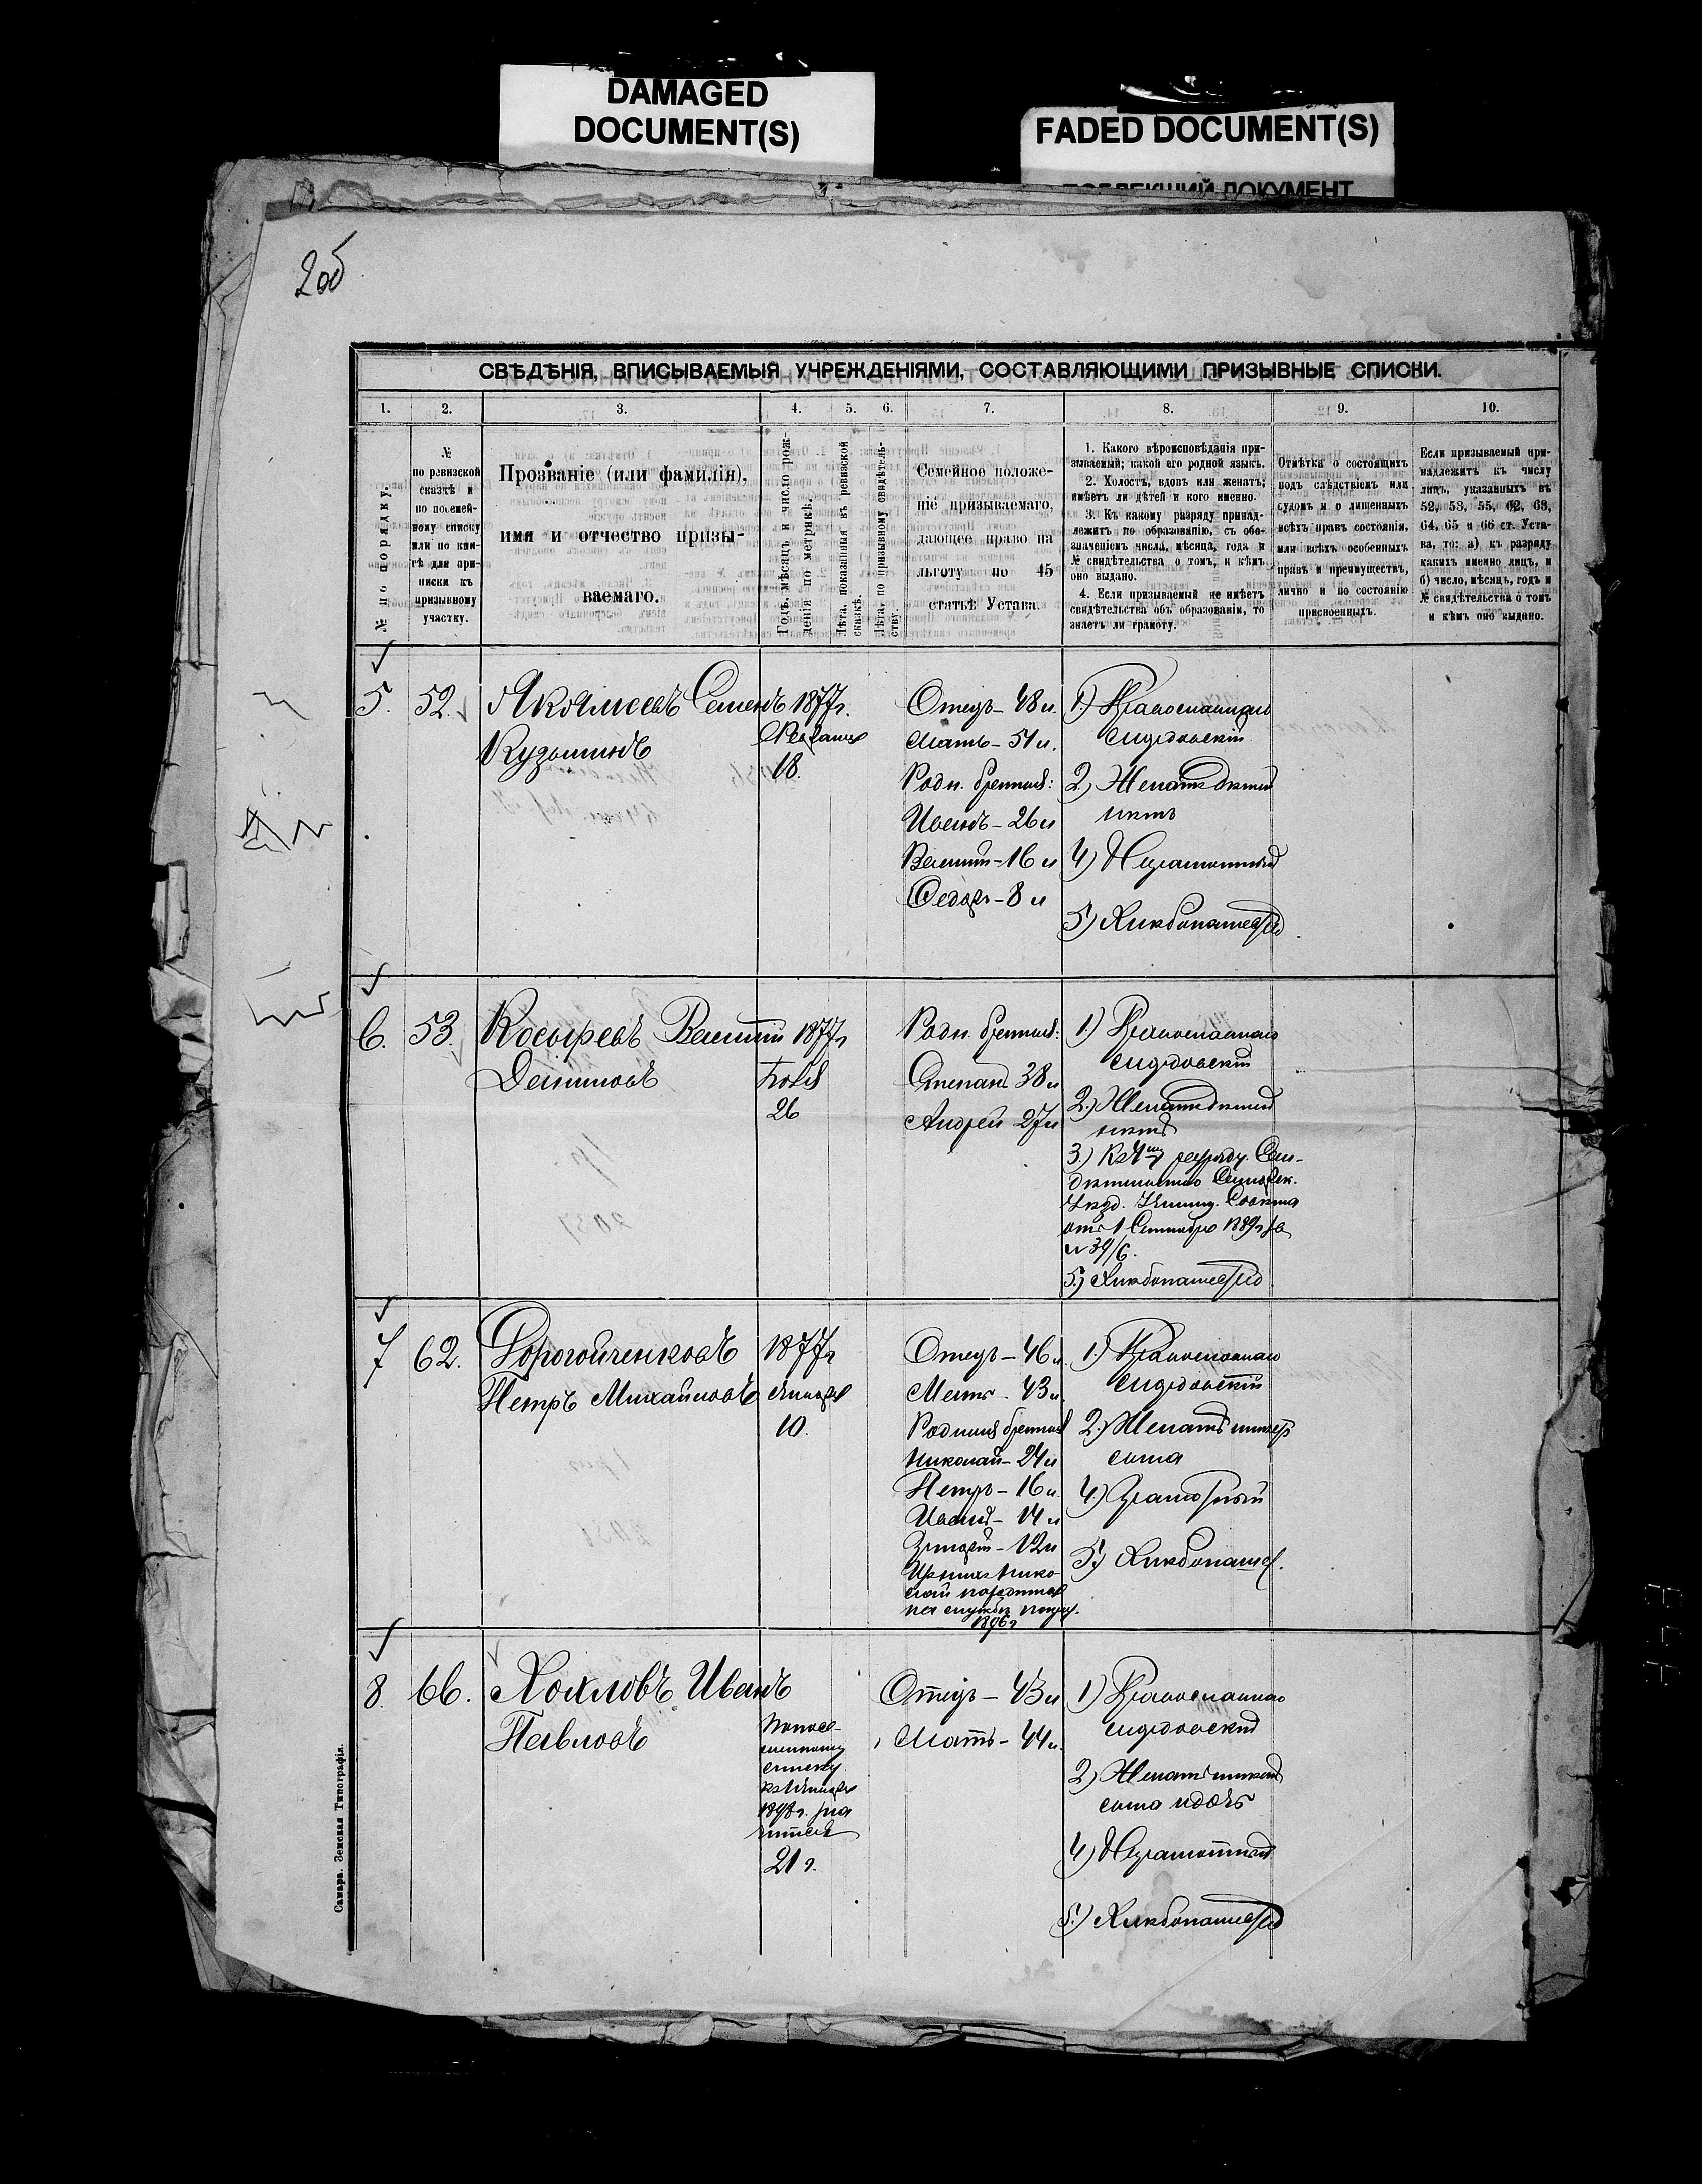 DAMAGED
DOCUMENT(S)
FADED DOCUMENT(S)
ДОКУМЕНТ
2об
СВѢДѢНІЯ, ВПИСЫВАЕМЫЯ УЧРЕЖДЕНІЯМИ, СОСТАВЛЯЮЩИМИ ПРИЗЫВНЫЕ СПИСКИ.
1. 2. 3. 4. 5. 6. 7. 8. 9. 10.
№ по порядку.
№
по ревизской
сказкѣ и
по посемей-
ному списку
или по кни-
гѣ для при-
писки къ
призывному
участку.
Прозваніе (или фамилія),
имя и отчество призы-
ваемаго.
Годъ, мѣсяцъ и число рож-
денія по метрикѣ.
Лѣта, показанныя въ ревизской
сказкѣ.
Лѣта, по призывному свидѣтель-
ству.
Семейное положе-
ніе призываемаго,
дающее право на
льготу по 45
статьѣ Устава.
1. Какого вѣроисповѣданія при-
зываемый; какой его родной языкъ.
2. Холостъ, вдовъ или женатъ;
имѣетъ ли дѣтей и кого именно.
3. Къ какому разряду принад-
лежитъ по образованію, съ обо-
значеніемъ числа, мѣсяца, года и
№ свидѣтельства о томъ, и кѣмъ
оно выдано.
4. Если призываемый не имѣетъ
свидѣтельства объ образованіи, то
знаетъ ли грамоту.
Отмѣтка о состоящихъ
подъ слѣдствіемъ или
судомъ и о лишенныхъ
всѣхъ правъ состоянія,
или всѣхъ особенныхъ
правъ и преимуществъ,
лично и по состоянію
присвоенныхъ.
Если призываемый при-
надлежитъ къ числу
лицъ, указанныхъ въ
52, 53, 55, 62, 63,
64, 65 и 66 ст. Уста-
ва, то: а) къ разряду
какихъ именно лицъ, и
б) число, мѣсяцъ, годъ и
№ свидѣтельства о томъ
и кѣмъ оно выдано.
5. 52. Семенъ 1877г.
Кузьминъ
18.
Отецъ – 48 л.
Мать – 51 л.
Родн. братья:
Иванъ – 26 л
Василій – 16 л
Федоръ – 8 л
1) Православнаго
2) Женатъ дѣтей
нѣтъ
4) Неграмотный
5) Хлѣбопашецъ
6. 53. Косыревъ Василій 1877г
Даниловъ
26
Родн. братья:
Степанъ 38 л
Андрей 27 л
1) Православнаго
2.) Женатъ дѣтей
нѣтъ
3.) Къ 4му разряду. Сви-
дѣтельство
Уѣзд. Училищ. Совѣта
отъ 1 Сентября 1889г за
№ 39/6.
5.) Хлѣбопашецъ
7 62. Дорогойченковъ 1877г
Петръ Михайловъ Января
10.
Отецъ – 46 л.
Мать – 43 л.
Родные братья
Николай – 24 л
Петръ – 16 л.
Иванъ – 14 л
Григорій – 12 л
Изъ нихъ Нико-
лай находится
на службѣ
1896г
1.) Православнаго
2.) Женатъ имѣетъ
сына
4.) Грамотный
5.) Хлѣбопашец.
8. 66. Хохловъ Иванъ
Павловъ
По посе-
мейному
списку
къ Января
1898г.
21 г.
Отецъ – 43 л
Мать – 44 л.
1) Православнаго
2) Женатъ имѣетъ
сына и дочь
4) Неграмотный
5.) Хлѣбопашецъ
Самара. Земская Типографія.